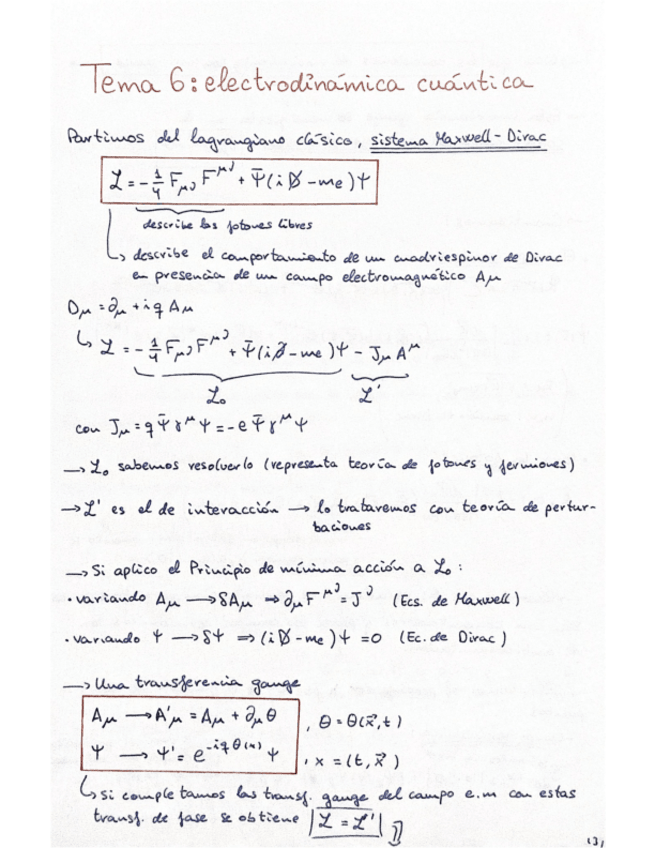 Tema 6: electrodinámica cuántica
Partimos del lagrangiano clásico, sistema Maxwell-Dirac
ℒ = -1/4 F_μν F^μν + Ψ̄(i D̸ - me)Ψ
describe los fotones libres
↳ describe el comportamiento de un cuadriespinor de Dirac
en presencia de un campo electromagnético Aμ
Dμ = ∂μ + iq Aμ
↳ ℒ = -1/4 F_μν F^μν + Ψ̄(i ∂̸ - me)Ψ - J_μ A^μ
ℒ₀ ℒ'
con Jμ = q Ψ̄ γ^μ Ψ = -e Ψ̄ γ^μ Ψ
→ ℒ₀ sabemos resolverlo (representa teoría de fotones y fermiones)
→ ℒ' es el de interacción → lo trataremos con teoría de pertur-
baciones
→ Si aplico el Principio de mínima acción a ℒ₀:
· variando Aμ → δAμ ⇒ ∂μ F^μν = J^ν (Ecs. de Maxwell)
· variando Ψ → δΨ ⇒ (i D̸ - me)Ψ = 0 (Ec. de Dirac)
→ Una transferencia gauge
Aμ → A'μ = Aμ + ∂μ θ , θ = θ(x⃗,t)
Ψ → Ψ' = e^{-iqθ(x)} Ψ , x = (t, x⃗)
↳ Si completamos las transf. gauge del campo e.m con estas
transf. de fase se obtiene |ℒ = ℒ'|
131